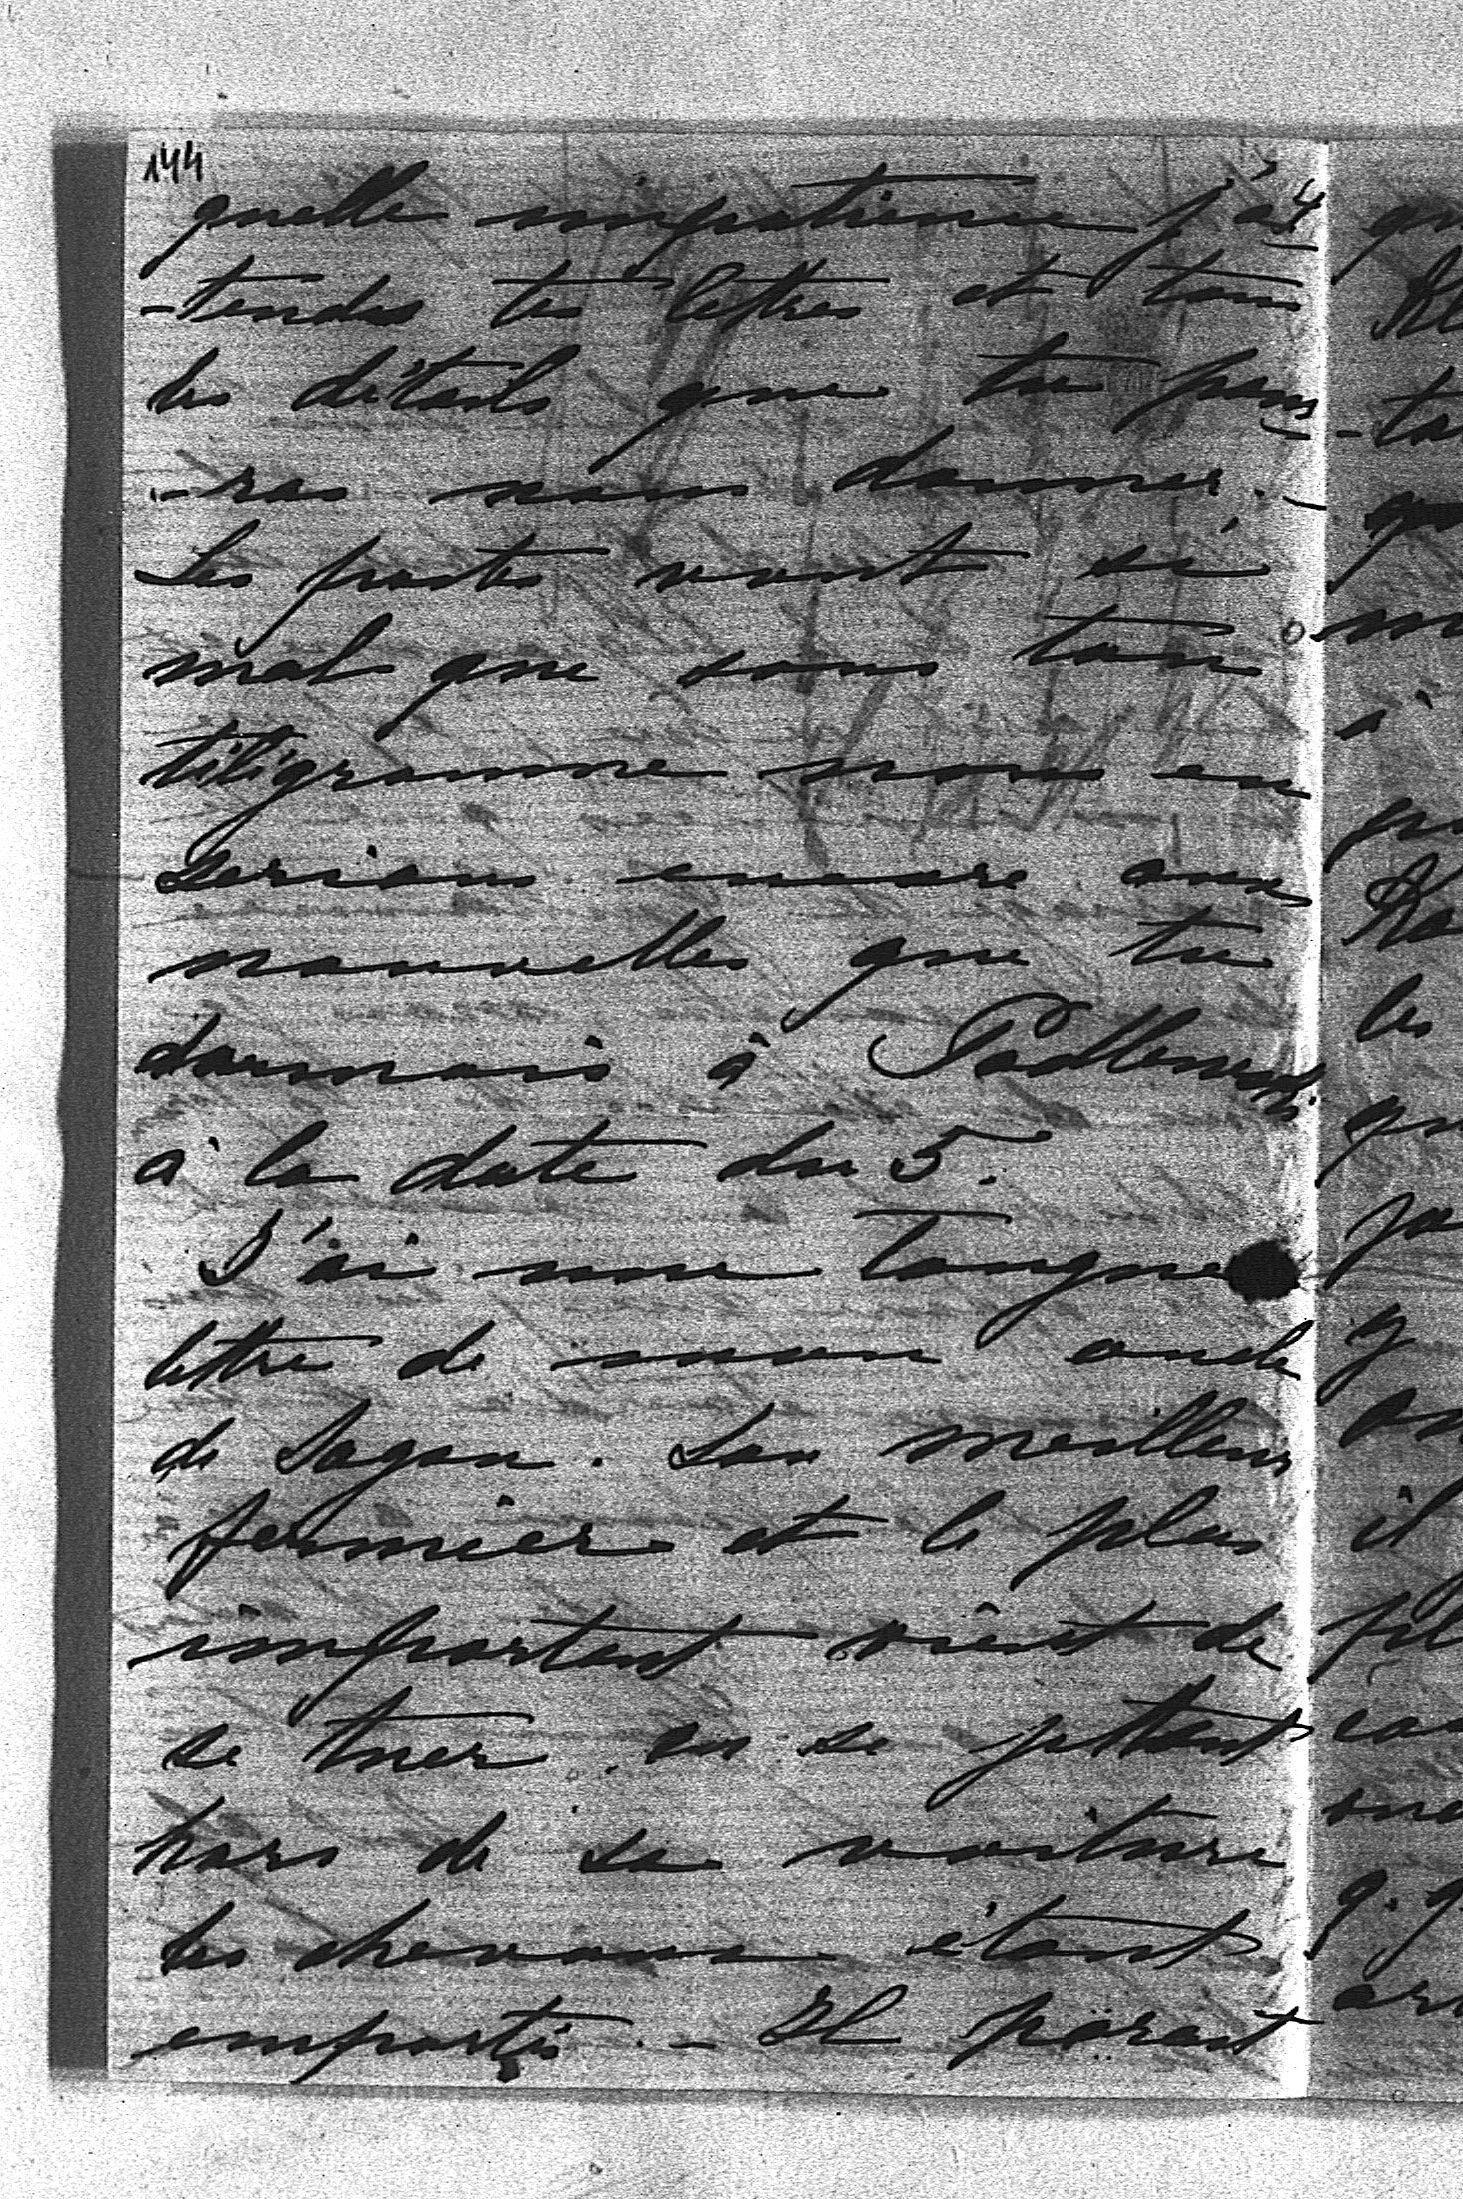 144
quelle impatience j'at
-tends tes lettres et tous
les détails que tu pour
-ras nous donner. -
Les postes vont si
mal que sans ton
télégramme nous en
serions encore aux
nouvelles que tu
donnais à
à la date du 5.
J'ai une longue
lettre de mon oncle
de Sagan. Son meilleur
fermier et le plus
important vient de
se tuer en se jettant
hors de sa voiture
les chevaux étant
emportés. - Il parait